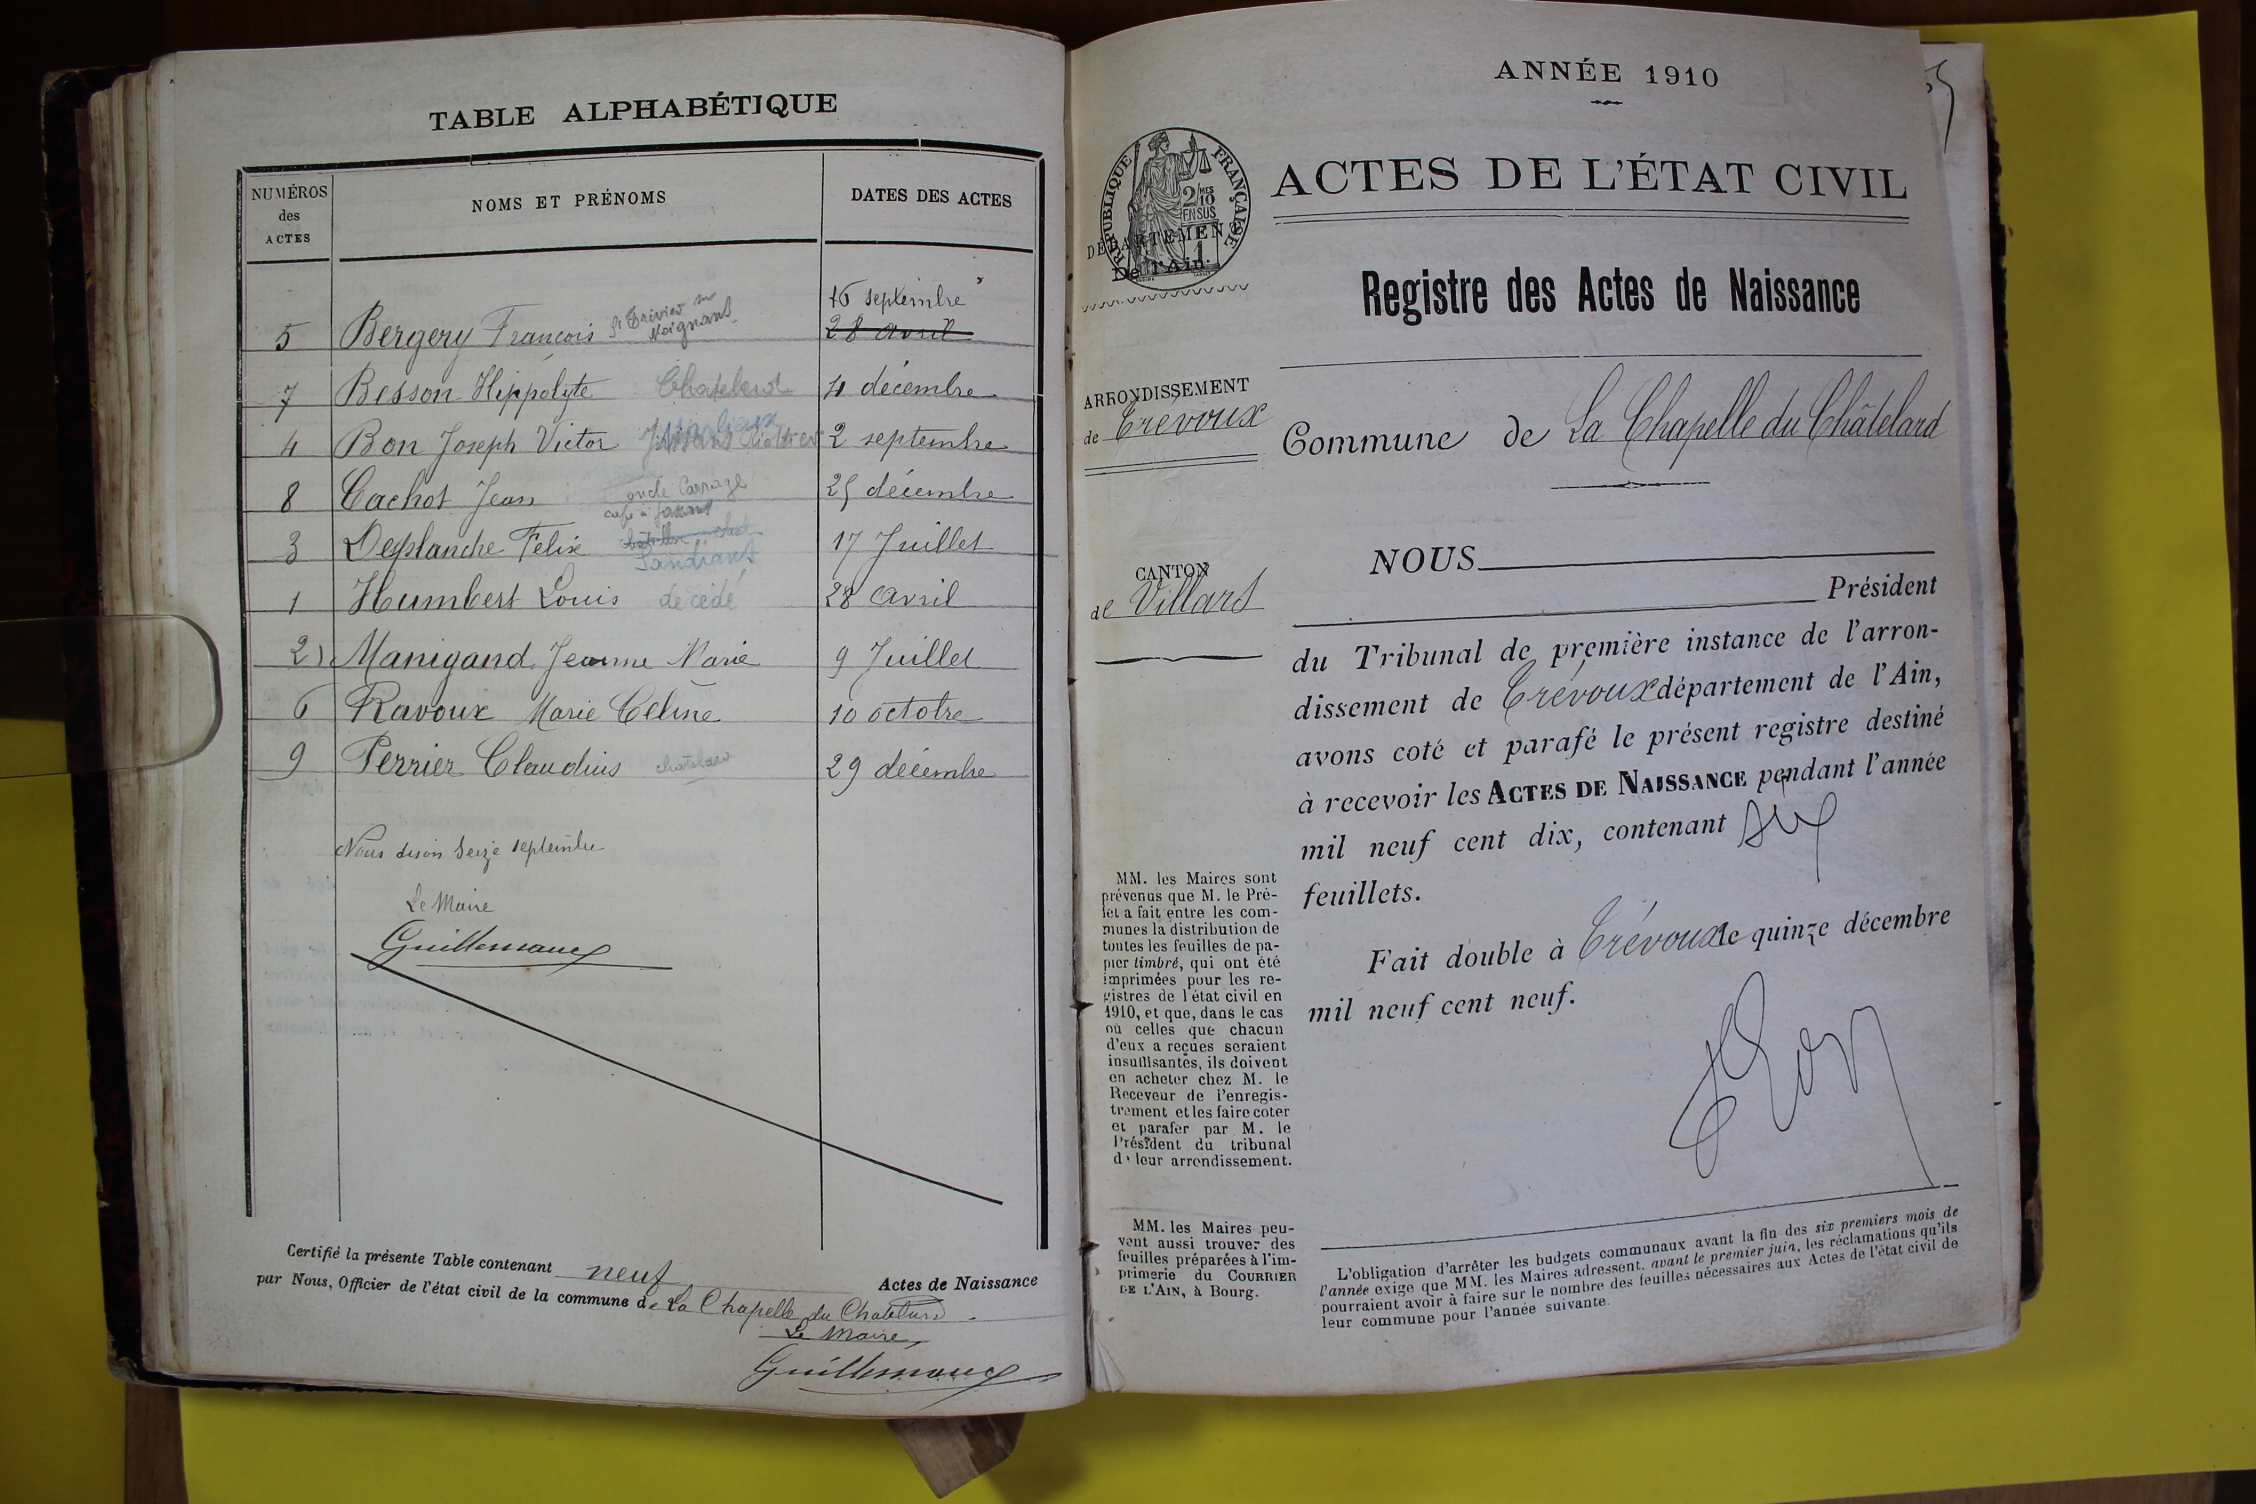 TABLE ALPHABÉTIQUE
NUMÉROS des ACTES
NOMS ET PRÉNOMS
DATES DES ACTES
16 septembre
5 Bergery François St Trivier sur Moignans 28 avril
7 Besson Hippolyte Chatelard 4 décembre
4 Bon Joseph Victor 2 septembre
8 Cachot Jean 25 décembre
3 Deplanche Félix 17 Juillet
1 Humbert Louis decédé 28 avril
2 Manigand Jeanne Marie 9 Juillet
6 Ravoux Marie Celine 10 octobre
9 Perrier Claudius chatelard 29 décembre
Nous disons Seize septembre
Le Maire
Guillemaud
Certifié la présente Table contenant neuf Actes de Naissance
par Nous, Officier de l'état civil de la commune de La Chapelle du Chatelard
Le Maire,
Guillemaud
ANNÉE 1910
RÉPUBLIQUE FRANÇAISE
2/10 MES EN SUS
1
DÉPARTEMENT
De l'Ain
ACTES DE L'ÉTAT CIVIL
Registre des Actes de Naissance
ARRONDISSEMENT
de Trévoux
Commune de La Chapelle du Châtelard
CANTON
de Villars
NOUS
Président
du Tribunal de première instance de l'arron-
dissement de Trévoux département de l'Ain,
avons coté et parafé le présent registre destiné
à recevoir les ACTES DE NAISSANCE pendant l'année
mil neuf cent dix, contenant six
feuillets.
Fait double à Trévoux le quinze décembre
mil neuf cent neuf.
MM. les Maires sont
prévenus que M. le Pré-
fet a fait entre les com-
munes la distribution de
toutes les feuilles de pa-
pier timbré, qui ont été
imprimées pour les re-
gistres de l'état civil en
1910, et que, dans le cas
où celles que chacun
d'eux a reçues seraient
insuffisantes, ils doivent
en acheter chez M. le
Receveur de l'enregis-
trement et les faire coter
et parafer par M. le
Président du tribunal
de leur arrondissement.
MM. les Maires peu-
vent aussi trouver des
feuilles préparées à l'im-
primerie du COURRIER
DE L'AIN, à Bourg.
L'obligation d'arrêter les budgets communaux avant la fin des six premiers mois de
l'année exige que MM. les Maires adressent, avant le premier juin, les réclamations qu'ils
pourraient avoir à faire sur le nombre des feuilles nécessaires aux Actes de l'état civil de
leur commune pour l'année suivante.